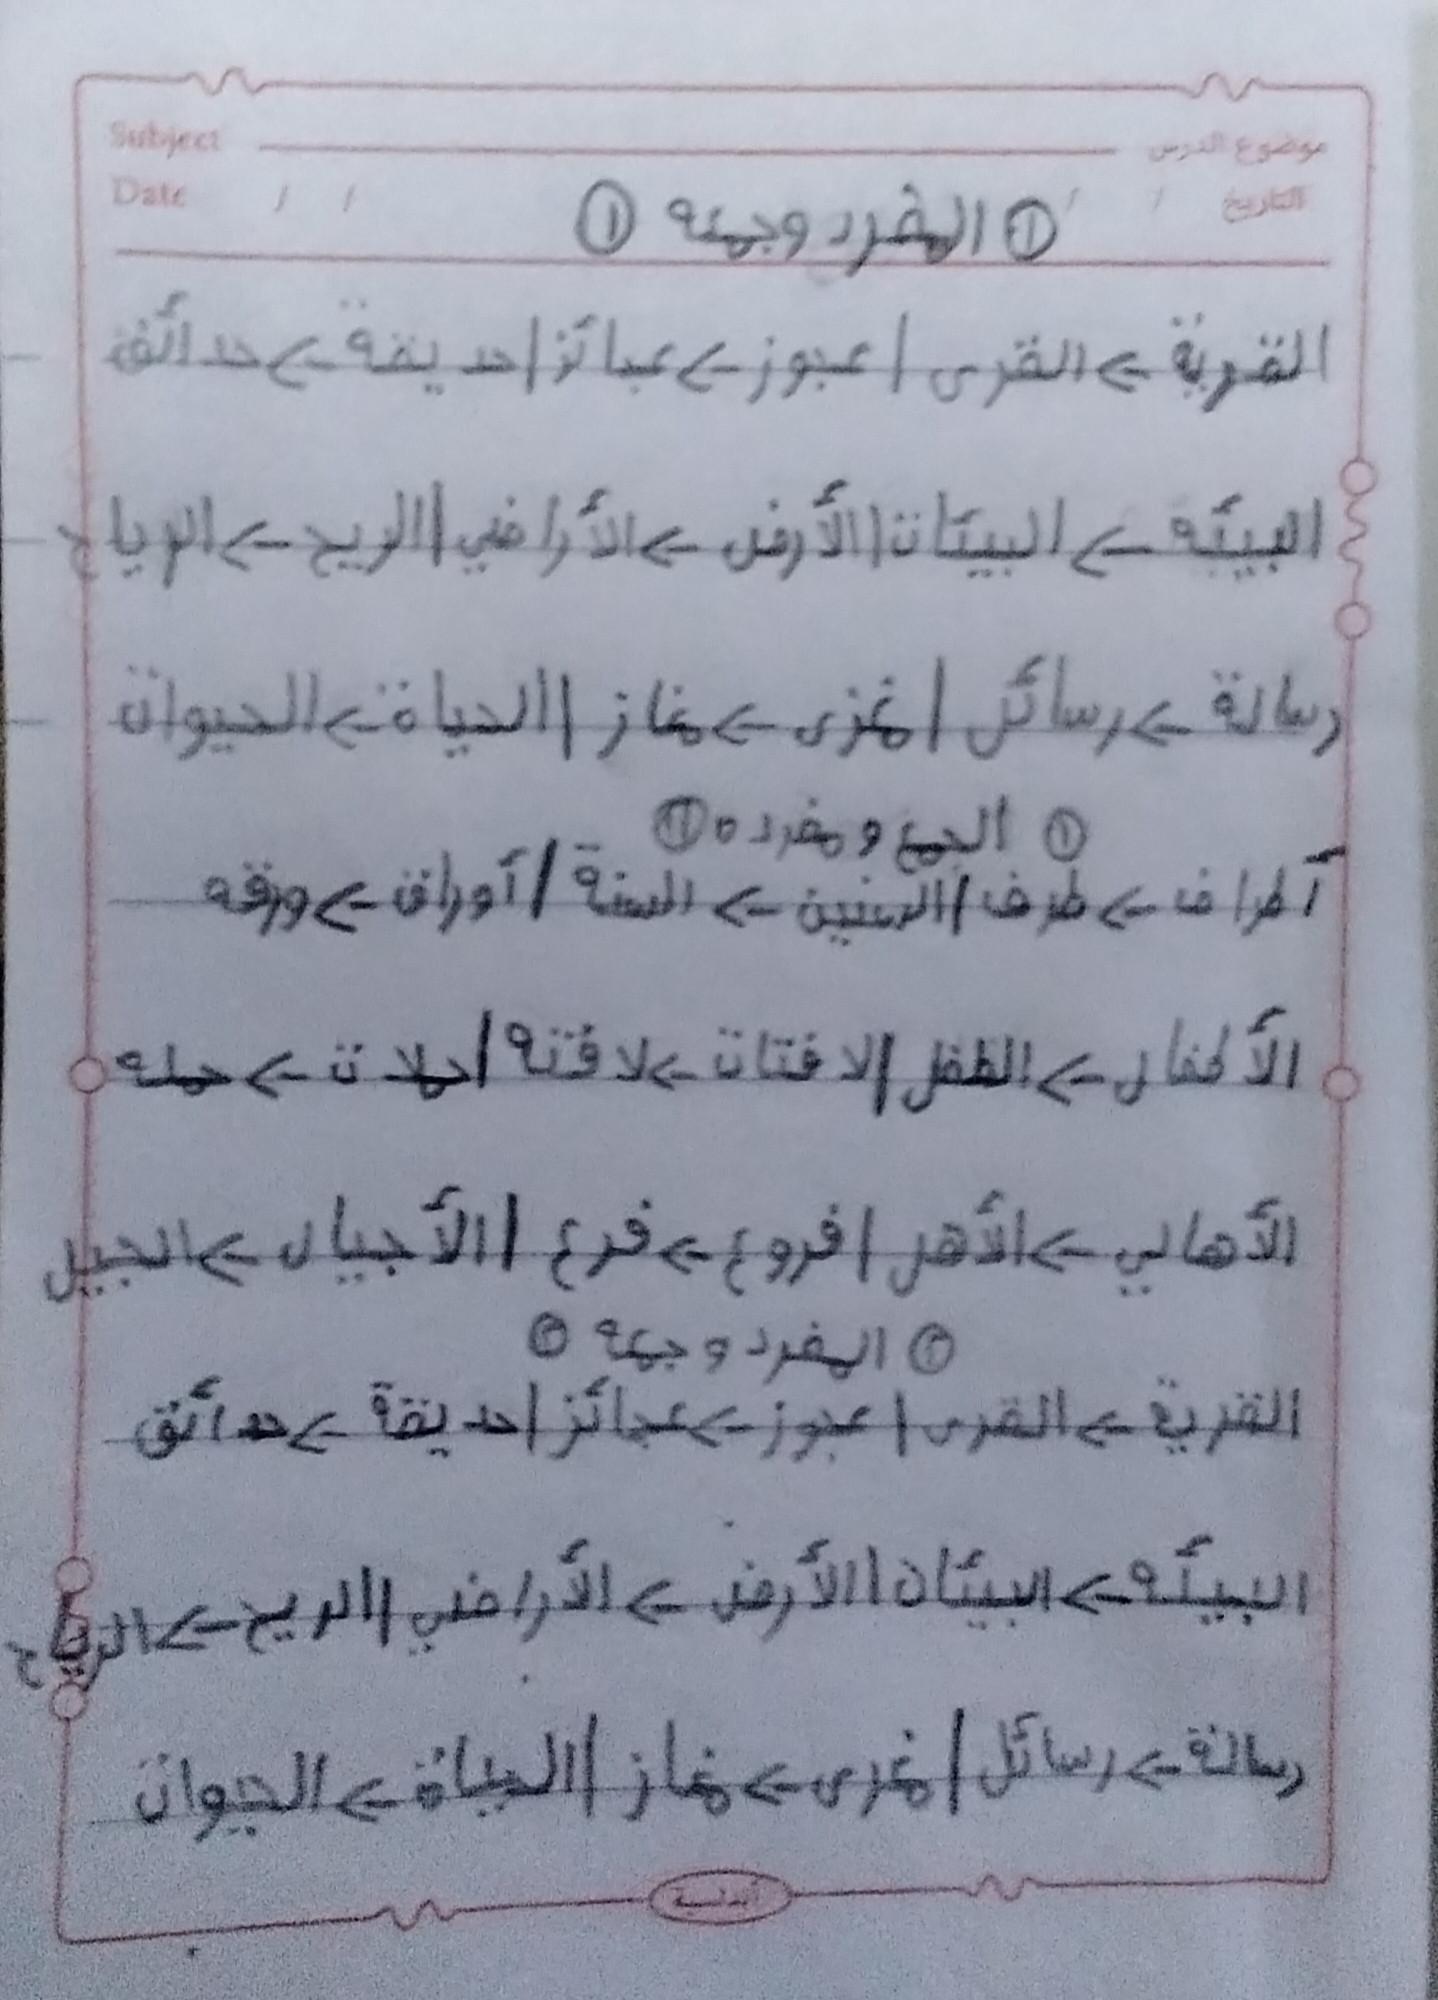 Subject موضوع الدرس
Date / / / / التاريخ
① المفرد وجمعه ①
القرية > القرى | عجوز > عجائز | حديقة > حدائق
البيئه > البيئات | الأرض > الأراضي | الريح > الرياح
رسالة > رسائل | مغزى > مغاز | الحياة > الحيوات
① الجمع ومفرده ①
أطراف > طرف | السنين > السنة | أوراق > ورقه
الأطفال > الطفل | لافتات > لافتة | حملات > حمله
الأهالي > الأهل | فروع > فرع | الأجيال > الجيل
② المفرد وجمعه ②
القرية > القرى | عجوز > عجائز | حديقة > حدائق
البيئه > البيئات | الأرض > الأراضي | الريح > الرياح
رسالة > رسائل | مغزى > مغاز | الحياة > الحيوات